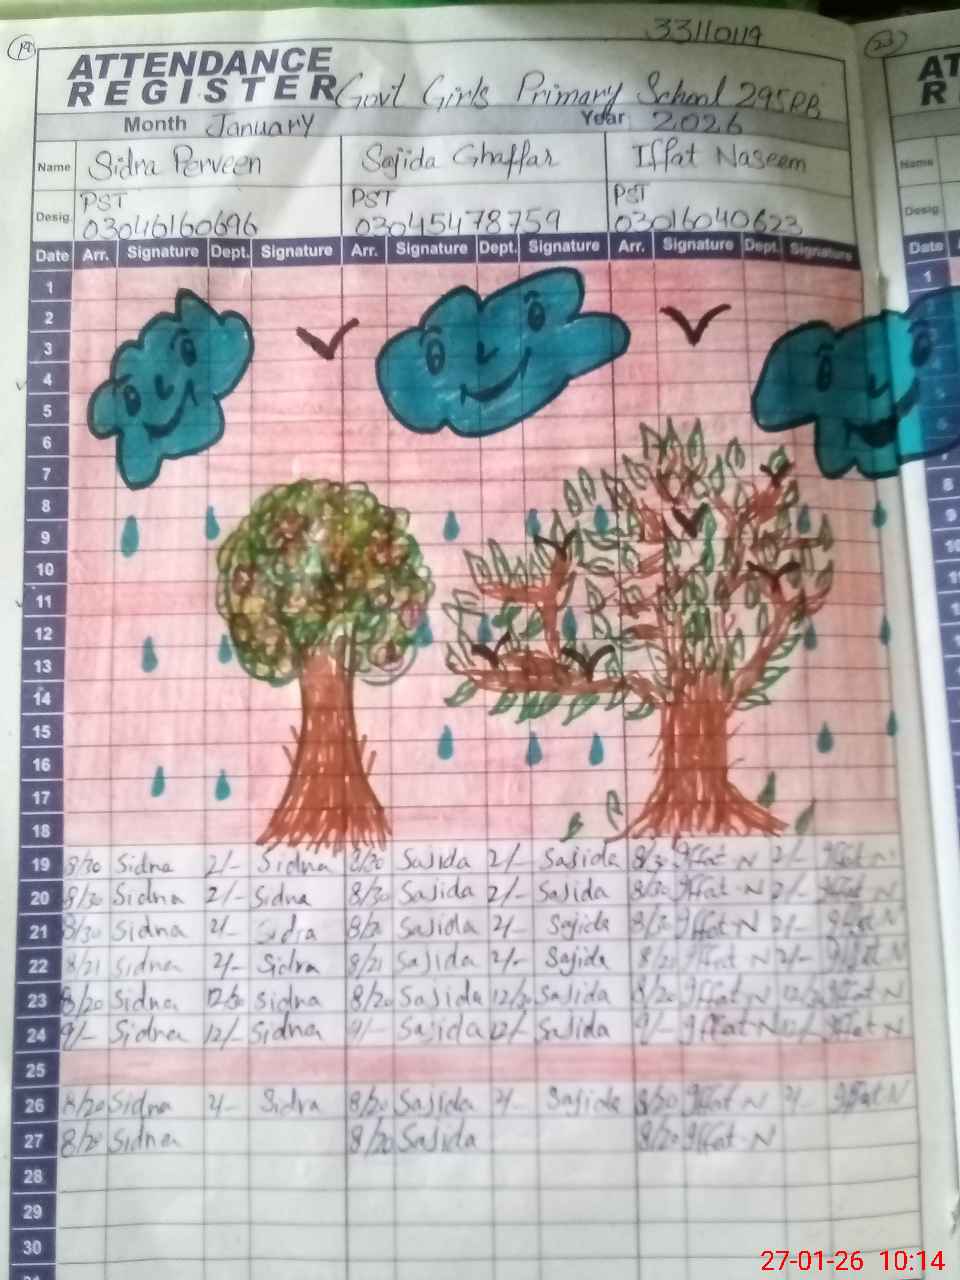 33110119
19
23
ATTENDANCE
REGISTER Govt Girls Primary School 295PB
Month January Year 2026
Name Sidra Perveen Sajida Ghaffar Iffat Naseem
PST PST PST
Desig. 03046160696 03045478759 03016040623
Date Arr. Signature Dept. Signature Arr. Signature Dept. Signature Arr. Signature Dept. Signature
1
2
3
4
5
6
7
8
9
10
11
12
13
14
15
16
17
18
19 8/30 Sidra 2/- Sidra 8/30 Sajida 2/- Sajida 8/30 Iffat N 2/- Iffat N
20 8/30 Sidra 2/- Sidra 8/30 Sajida 2/- Sajida 8/30 Iffat N 2/- Iffat N
21 8/30 Sidra 2/- Sidra Sajida 2/- Sajida 8/30 Iffat N 2/- Iffat N
22 8/21 Sidra 2/- Sidra 8/21 Sajida 2/- Sajida Iffat N 2/- Iffat N
23 8/20 Sidra 12/30 Sidra 8/20 Sajida 12/30 Sajida 8/20 Iffat N Iffat N
24 9/- Sidra 12/- Sidra 9/- Sajida 12/- Sajida 9/- Iffat N Iffat N
25
26 8/20 Sidra 2/- Sidra 8/20 Sajida 2/- Sajida 8/20 Iffat N 2/- Iffat N
27 8/20 Sidra 8/20 Sajida 8/20 Iffat N
28
29
30
Name
Desig.
Date
1
8
9
10
27-01-26 10:14